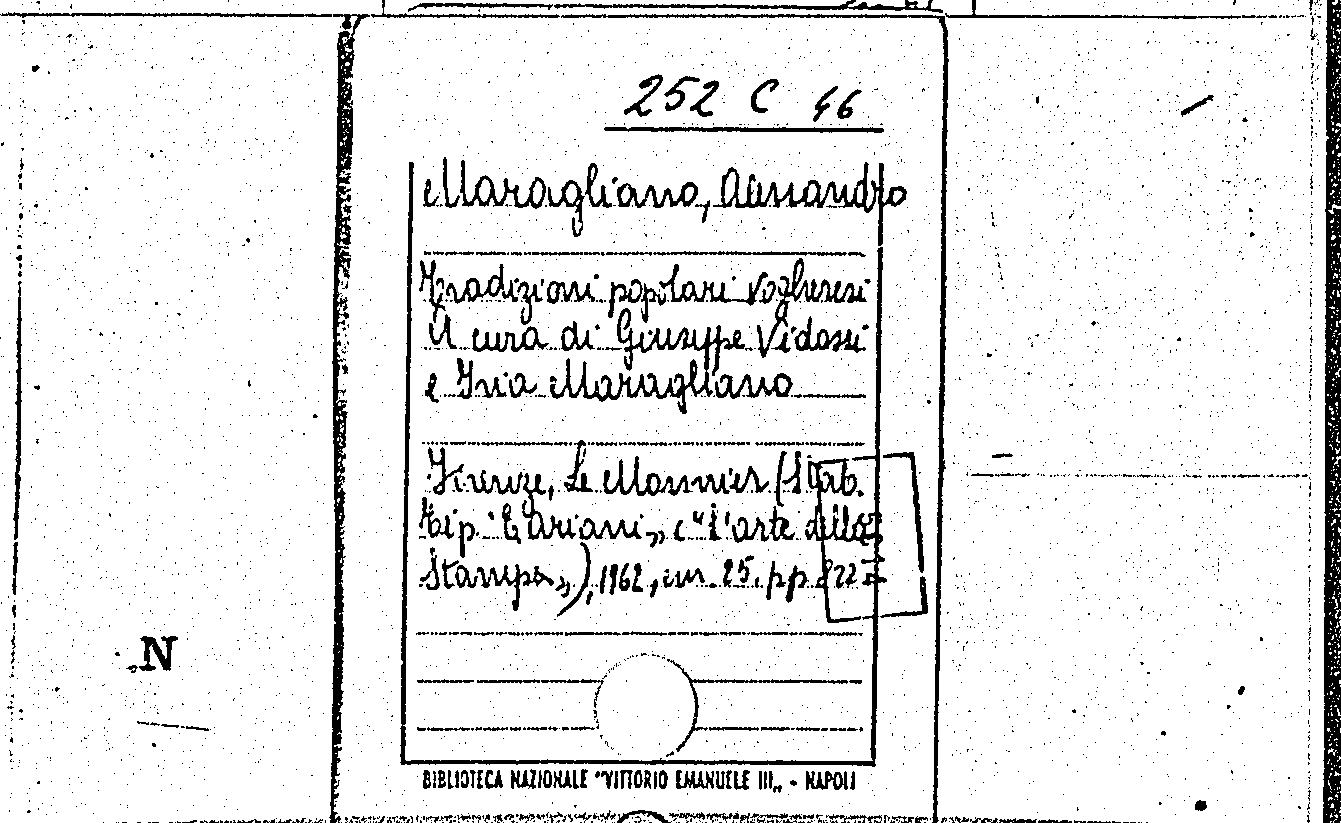 252 C 46
Maragliano, Alessandro
Tradizioni popolari vogheresi
A cura di Giuseppe Vidossi
e Iria Maragliano
Firenze, Le Monnier (Stab.
Tip. "E. Ariani„ e "L'arte della
Stampa„), 1962, cm. 25. pp
N
BIBLIOTECA NAZIONALE "VITTORIO EMANUELE III„ - NAPOLI